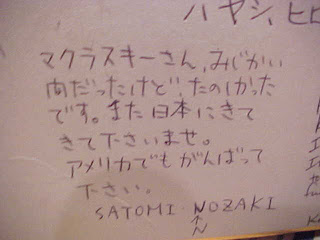 ハヤシ、ヒロ
マクラスキーさん、みじかい
間だったけど、たのしかった
です。また日本にきて
きて下さいませ。
アメリカでもがんばって
下さい。
SATOMI NOZAKI
↑
N